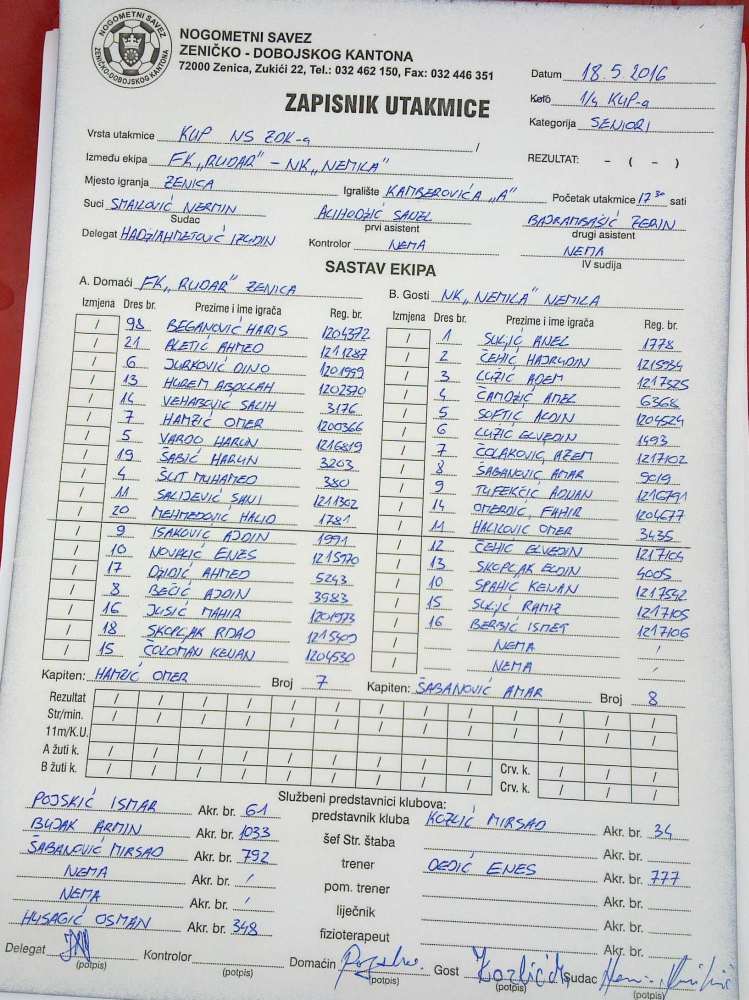 NOGOMETNI SAVEZ
ZENIČKO - DOBOJSKOG KANTONA
72000 Zenica, Zukići 22, Tel.: 032 462 150, Fax: 032 446 351
NOGOMETNI SAVEZ
ZENIČKO-DOBOJSKOG KANTONA
Datum 18.5 2016
ZAPISNIK UTAKMICE
Kolo 1/4 KUP-a
Kategorija SENIORI
Vrsta utakmice KUP NS ZDK-a /
Između ekipa FK „RUDAR" - NK „NEMILA" REZULTAT: - ( - )
Mjesto igranja ZENICA Igralište KAMBEROVIĆA „A" Početak utakmice 17 30 sati
Suci SMAILOVIĆ NERMIN ALIHODŽIĆ SANEL BAJRAMBAŠIĆ ZERIN
Sudac prvi asistent drugi asistent
Delegat HADŽIAHMETOVIĆ IZUDIN Kontrolor NEMA NEMA
IV sudija
SASTAV EKIPA
A. Domaći FK „RUDAR" ZENICA B. Gosti NK „NEMILA" NEMILA
Izmjena Dres br. Prezime i ime igrača Reg. br. Izmjena Dres br. Prezime i ime igrača Reg. br.
/ 98 BEGANOVIĆ HARIS 1204372 / 1 SULJIĆ ANEL 1778
/ 21 ALETIĆ AHMED 1211287 / 2 ČEHIĆ HAJRUDIN 1215934
/ 6 JURKOVIĆ DINO 1201999 / 3 LUŽIĆ ADEM 1217325
/ 13 HUREM ABDULAH 1202370 / 4 ČAMDŽIĆ AMEL 6368
/ 14 VEHABOVIĆ SALIH 3176 / 5 SOFTIĆ ALDIN 1204524
/ 7 HAMZIĆ OMER 1200366 / 6 LUŽIĆ ELVEDIN 1493
/ 5 VARDO HARUN 1216819 / 7 ČOLAKOVIĆ AZEM 1217102
/ 19 ŠABIĆ HARUN 3203 / 8 ŠABANOVIĆ AMAR 9019
/ 4 ŠLJIT MUHAMED 380 / 9 TUFEKČIĆ ADNAN 1216791
/ 11 SALIJEVIĆ SANI 1211302 / 14 OMERDIĆ, FAHIR 1204677
/ 20 MEHMEDOVIĆ HALID 1781 / 11 HALILOVIĆ OMER 3435
/ 9 ISAKOVIĆ AJDIN 1991 / 12 ČEHIĆ ELVEDIN 1217104
/ 10 NOVALIĆ ENES 1215970 / 13 SKOPLJAK ELDIN 4005
/ 17 DŽIDIĆ AHMED 5243 / 10 SPAHIĆ KENAN 1217542
/ 8 BEČIĆ AJDIN 3983 / 15 SULJIĆ RAMIZ 1217105
/ 16 JUSIĆ MAHIR 1201973 / 16 BERBIĆ ISMET 1217106
/ 18 SKOPLJAK RIJAD 1215409 / NEMA /
/ 15 ČOLOMAN KENAN 1204530 / NEMA /
Kapiten: HAMZIĆ OMER Broj 7 Kapiten: ŠABANOVIĆ AMAR Broj 8
Rezultat / / / / / / / / / / / / /
Str/min. / / / / / / / / / / / / /
11m/K.U.
A žuti k. / / / / / / / / / Crv. k. / / /
B žuti k. / / / / / / / / / Crv. k. / / /
Službeni predstavnici klubova:
POJSKIĆ ISMAR Akr. br. 61 predstavnik kluba KOZLIĆ MIRSAD Akr. br. 34
BUJAK ARMIN Akr. br. 1033 šef Str. štaba Akr. br.
ŠABANOVIĆ MIRSAD Akr. br. 792 trener DEDIĆ ENES Akr. br. 777
NEMA Akr. br. / pom. trener Akr. br.
NEMA Akr. br. / liječnik Akr. br.
HUSAGIĆ OSMAN Akr. br. 348 fizioterapeut Akr. br.
Delegat Kontrolor Domaćin Gost Kozlić M Sudac
(potpis) (potpis) (potpis) (potpis) (potpis)